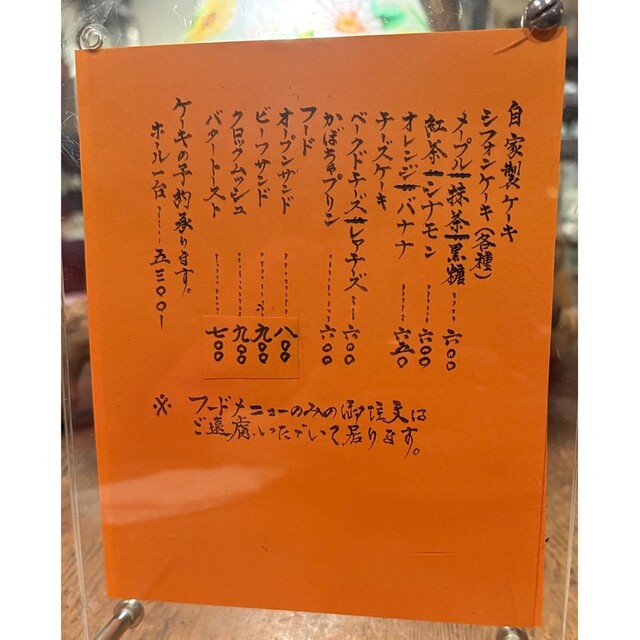 自家製ケーキ
シフォンケーキ(各種)
メープル 抹茶 黒糖……六00
紅茶 シナモン……六00
オレンジ バナナ……六五0
チーズケーキ
ベークドチーズ レアチーズ……六00
かぼちゃプリン……六00
フード
オープンサンド……八00
ビーフサンド……九00
クロックムッシュ……九00
バタートースト……七00
ケーキの予約承ります。
ホール一台……五三00ー
※ フードメニューのみの御注文は
ご遠慮いただいて居ります。